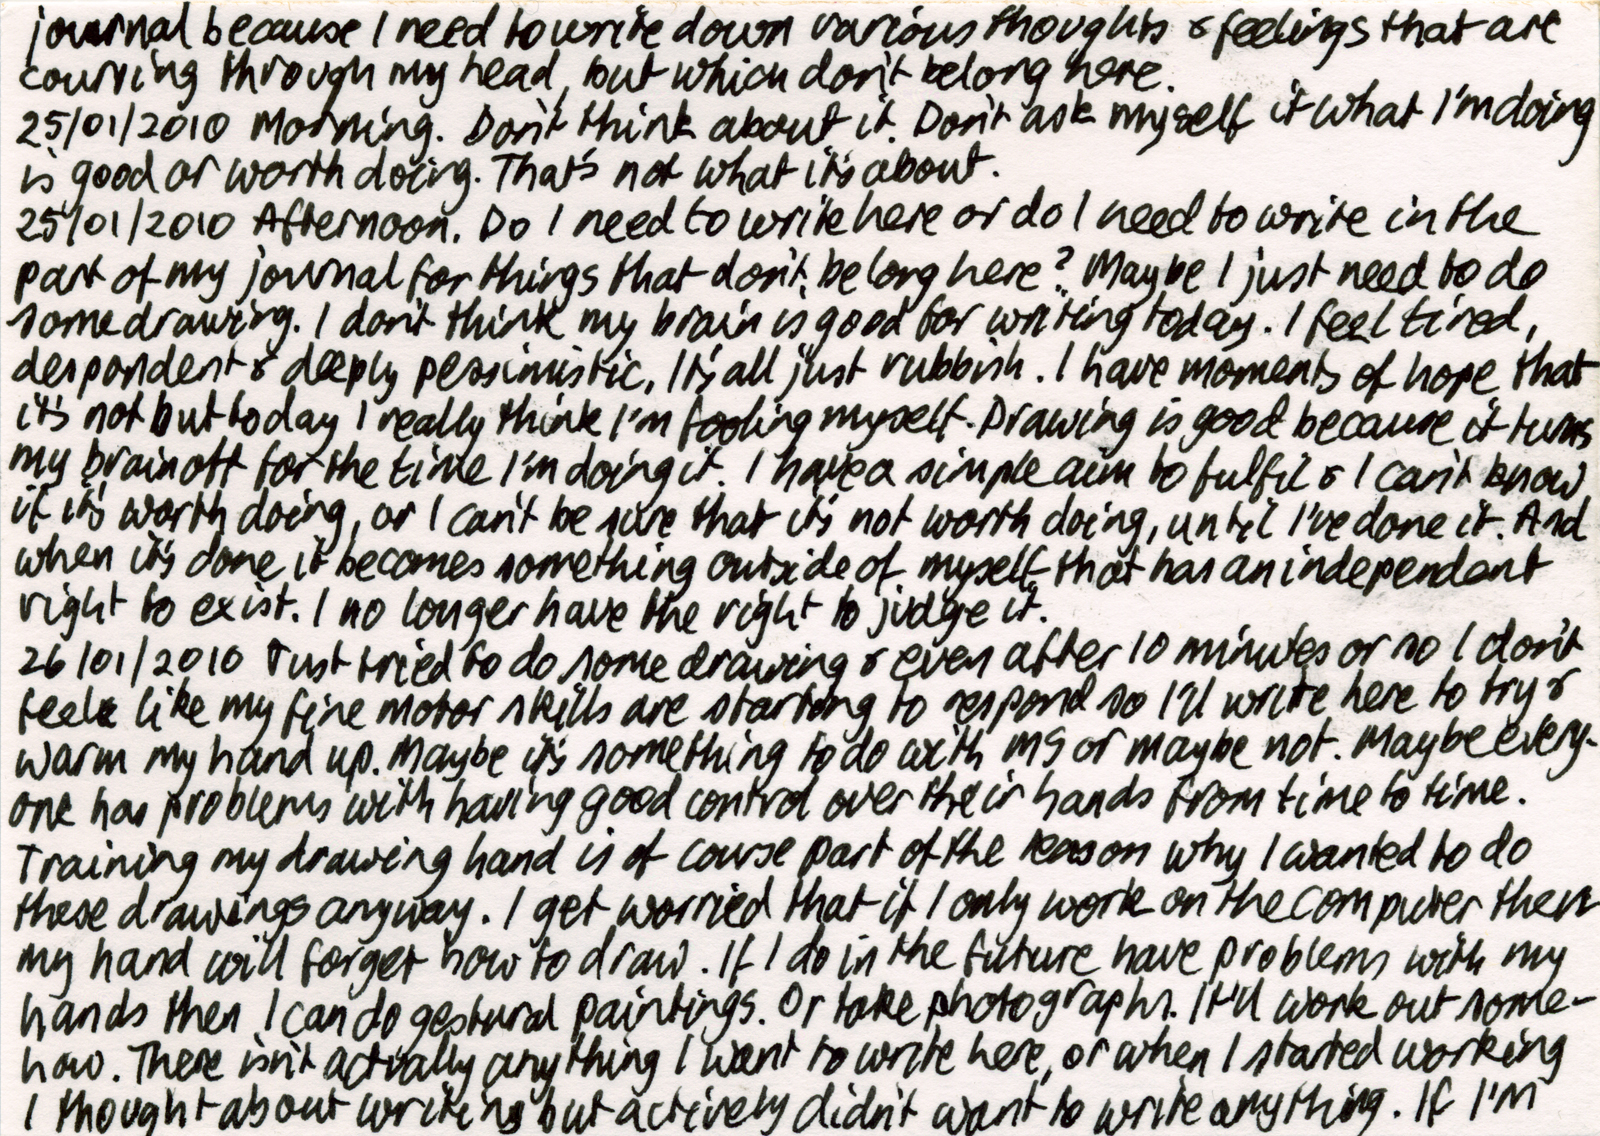 journal because I need to write down various thoughts & feelings that are
coursing through my head, but which don't belong here.
25/01/2010 Morning. Don't think about it. Don't ask myself if what I'm doing
is good or worth doing. That's not what it's about.
25/01/2010 Afternoon. Do I need to write here or do I need to write in the
part of my journal for things that don't belong here? Maybe I just need to do
some drawing. I don't think my brain is good for writing today. I feel tired,
despondent & deeply pessimistic. It's all just rubbish. I have moments of hope that
it's not but today I really think I'm fooling myself. Drawing is good because it turns
my brain off for the time I'm doing it. I have a simple aim to fulfil & I can't know
if it's worth doing, or I can't be sure that it's not worth doing, until I've done it. And
when it's done it becomes something outside of myself that has an independent
right to exist. I no longer have the right to judge it.
26/01/2010 Just tried to do some drawing & even after 10 minutes or so I don't
feel like my fine motor skills are starting to respond so I'll write here to try &
warm my hand up. Maybe it's something to do with MS or maybe not. Maybe every-
one has problems with having good control over their hands from time to time.
Training my drawing hand is of course part of the reason why I wanted to do
these drawings anyway. I get worried that if I only work on the computer then
my hand will forget how to draw. If I do in the future have problems with my
hands then I can do gestural paintings. Or take photographs. It'll work out some-
how. There isn't actually anything I want to write here, or when I started working
I thought about writing but actively didn't want to write anything. If I'm